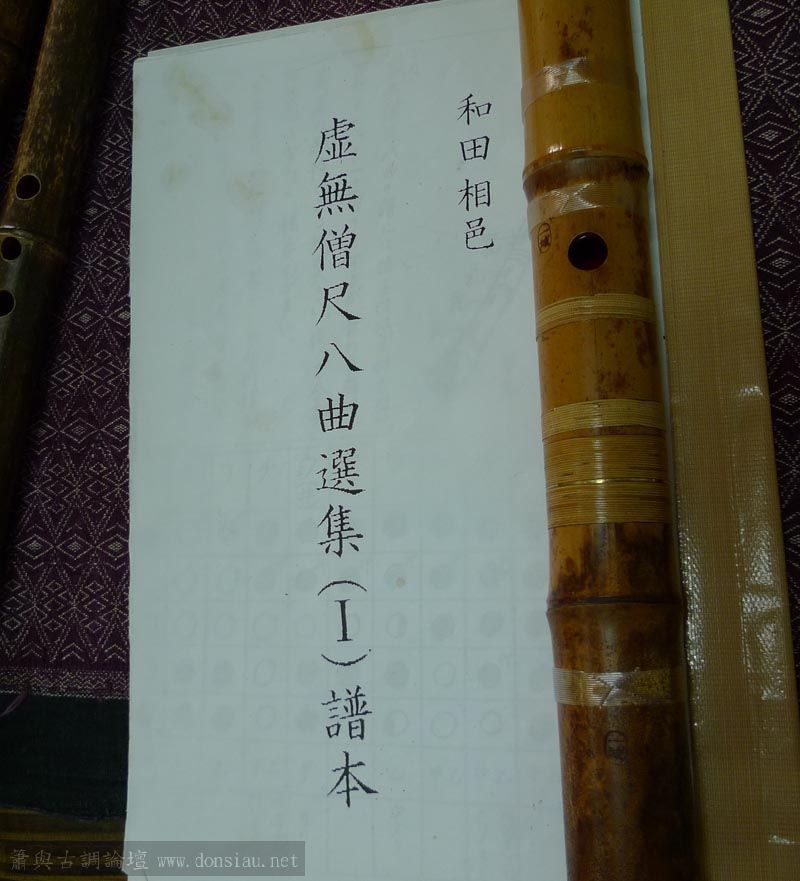 和田相邑
虛無僧尺八曲選集(I)譜本
蕭與古調論壇 www.donsiau.net